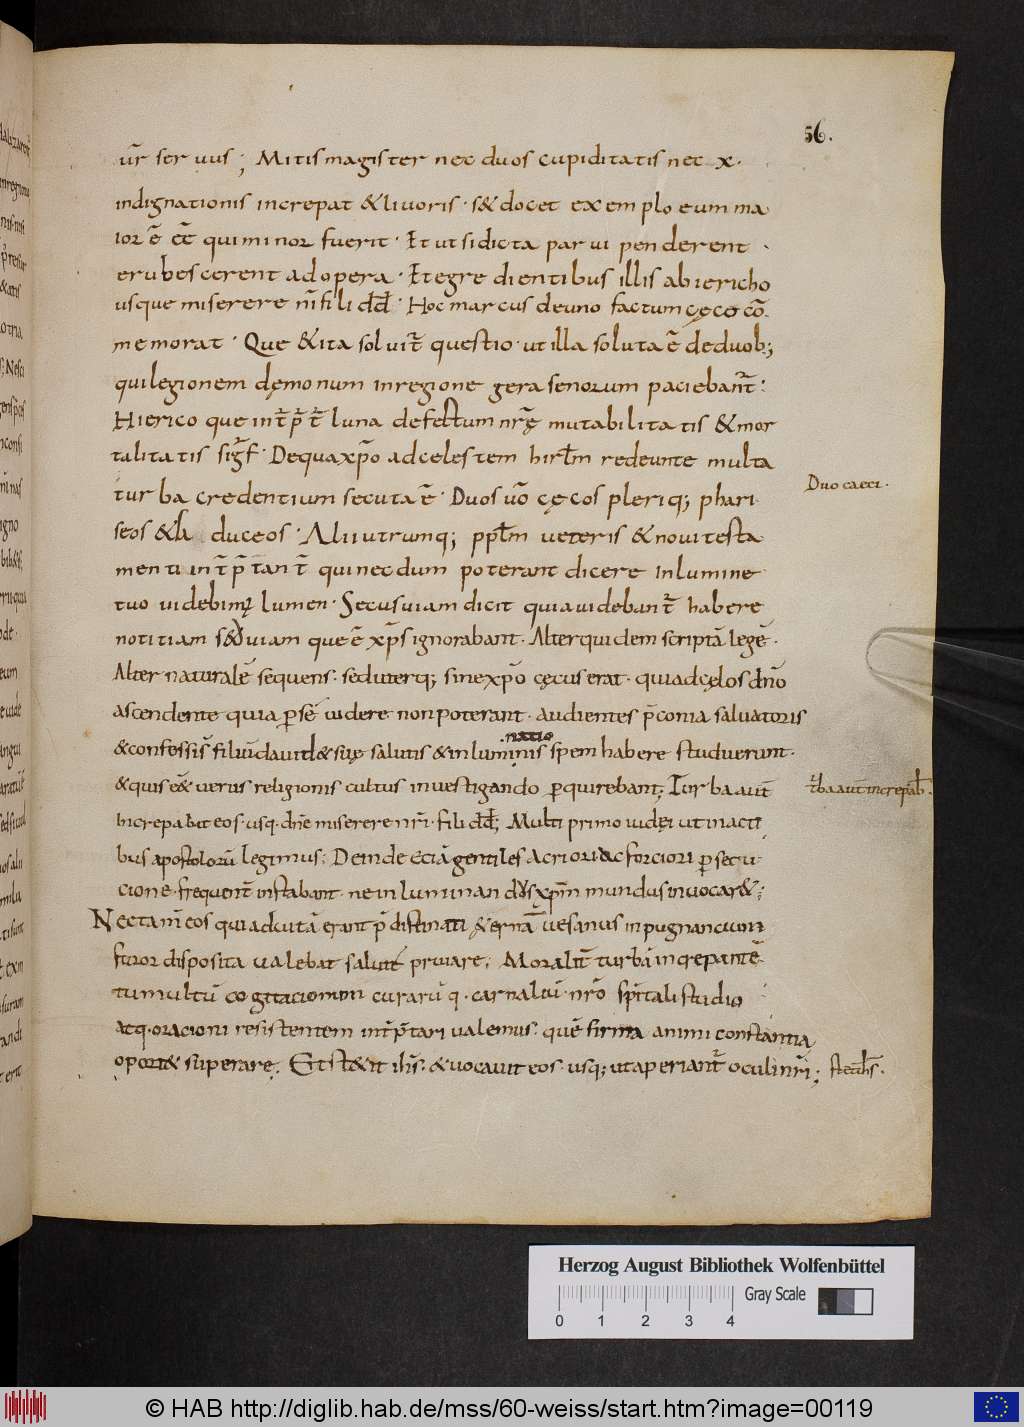 56.
ur̄ ser uus; Mitis magister nec duos cupiditatis nec x.
indignationis increpat &liuoris · s&docet exemplo eum ma
ior ē eē qui minor fuerit · Et ut si dicta parui penderent ·
erubescerent ad opera · Et egredientibus illis ab iericho
usque miserere nr̄i fili dd̄ · Hoc marcus de uno factum cęco cō
memorat · Que &ita soluit̄ questio · ut illa soluta ē de duob;
qui legionem dęmonum in regione gerasenorum paciebant̄ :
Hierico que int̄p̄t̄ luna defectum nr̄ę mutabilitatis &mor
talitatis sigf̄ · De qua xp̄o ad celestem hirlm̄ redeunte multa
turba credentium secuta ē · Duos uō cęcos pleriq; phari
Duo caeci ·
seos & duceos · Alii utrumq; pplm̄ ueteris &noui testa
menti int̄p̄tant̄ qui necdum poterant dicere In lumine
tuo uidebim; lumen · Secus uiam dicit quia uidebant̄ habere
notitiam s& uiam que ē xp̄s ignorabant · Alter quidem scriptā legē ·
Alter naturalē sequens · sed uterq; sine xp̄o cęcus erat · quia ad cęlos dn̄o
ascendente quia p̄ se uidere non poterant · audientes p̄conia saluatoris
natio
&confessi filiū dauid &suę salutis &inluminis spem habere studuerunt ·
&quis eēt uerus religionis cultus inuestigando p̄quirebant; Turba aut̄
t̄ba aut̄ increpab̄ ·
increpabit eos · usq · dn̄e miserere nr̄i · fili dd̄; Multi primo iudęi ut in acti
bus apostolorū legimus; Deinde eciā gentiles acriori ac forciori p̄secu
cione · frequent̄ instabant · ne inluminandus xp̄m mundus inuocar&;
Nec tam̄ eos qui ad uitā erant p̄destinati &ernā uesanus inpugnancium
furor disposita ualebat salute priuare; Moralit̄ turbā increpantē
tumultū cogitacionum curarū q · carnaliū · nr̄o sp̄itali studio
atq · oracioni resistentem int̄p̄tari ualemus · quē firma animi constantia
oport& superare; Et st&it ihs̄ · &uocauit eos · usq; ut aperiant̄ oculi nr̄i;
stet ihs̄ ·
Herzog August Bibliothek Wolfenbüttel
Gray Scale
0 1 2 3 4
© HAB http://diglib.hab.de/mss/60-weiss/start.htm?image=00119